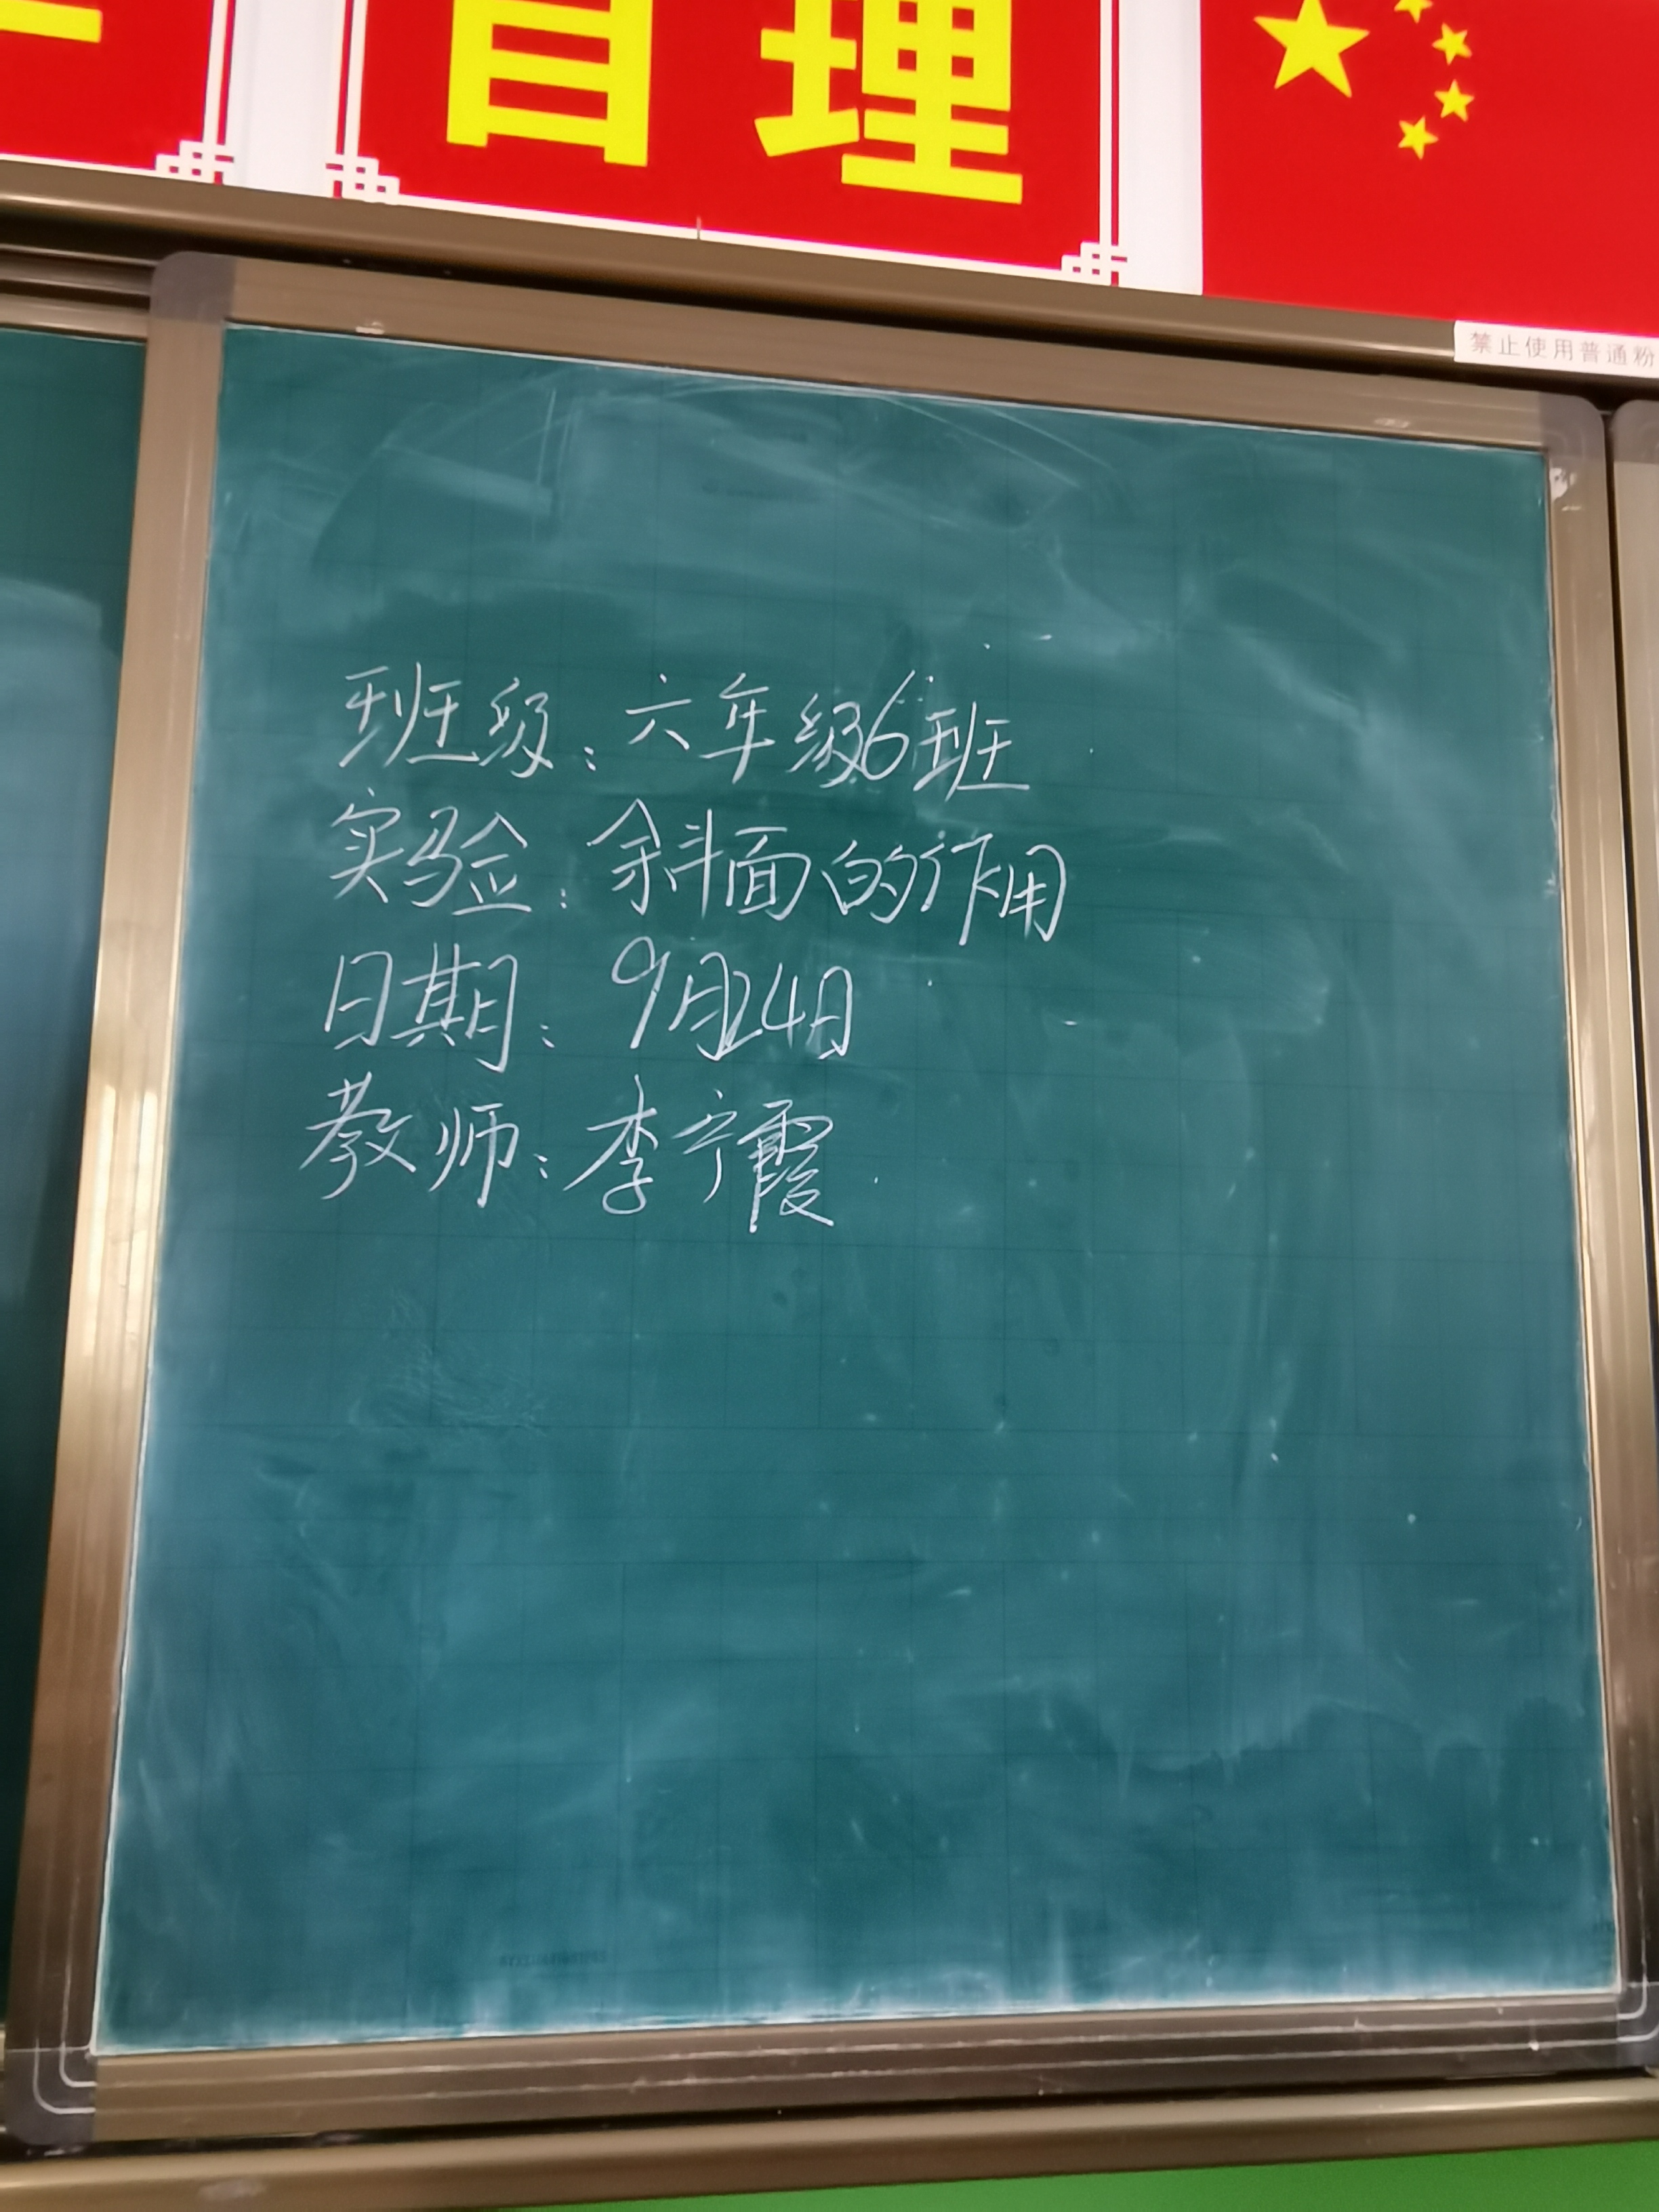 自理
禁止使用普通粉
班级：六年级6班
实验：斜面的作用
日期：9月24日
教师：李宁霞